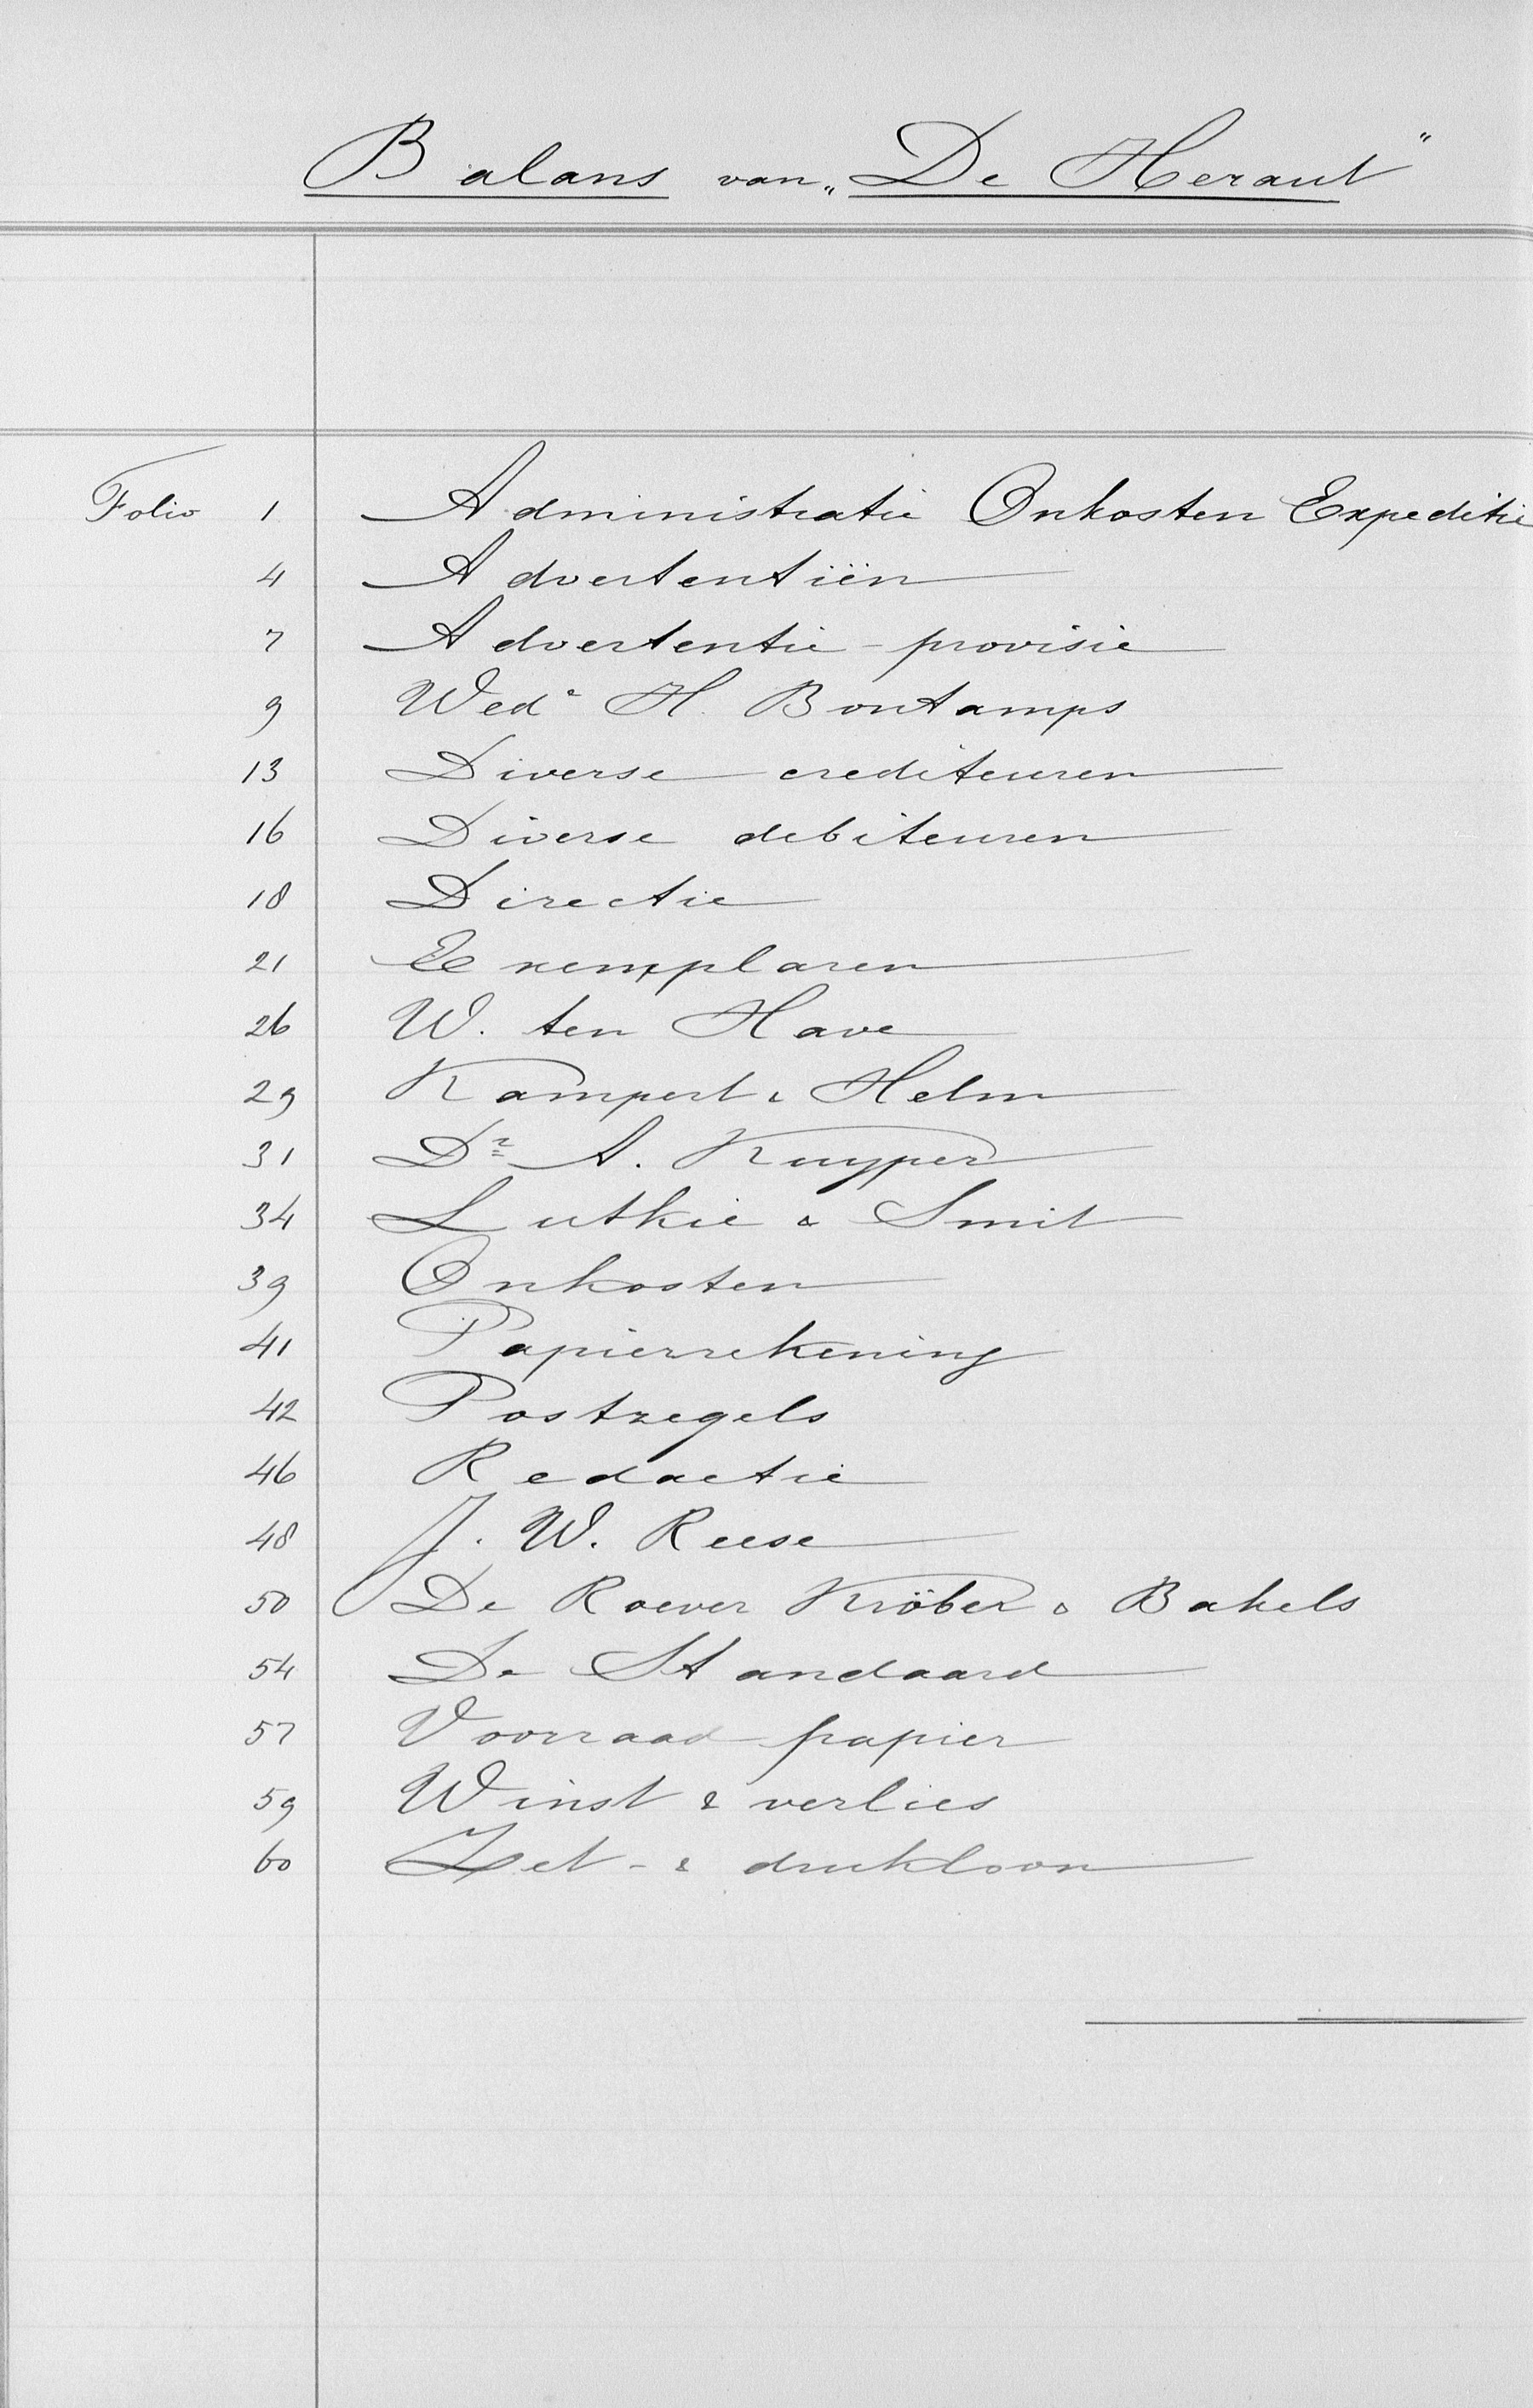 Balans van „De Heraut"
Folio 1 Administratie Onkosten Expeditie
4 Advertentiën
7 Advertentie-provisie
9 Wede H. Bontamps
13 Diverse crediteuren
16 Diverse debiteuren
18 Directie
21 Exemplaren
26 W. ten Have
29 Kampert & Helm
31 Dr A. Kuyper
34 Lutkie & Smit
39 Onkosten
41 Papierrekening
42 Postzegels
46 Redactie
48 J. W. Reese
50 De Roever Kröber & Bakels
54 De Standaard
57 Voorraad papier
59 Winst & verlies
60 Zet- & drukloon